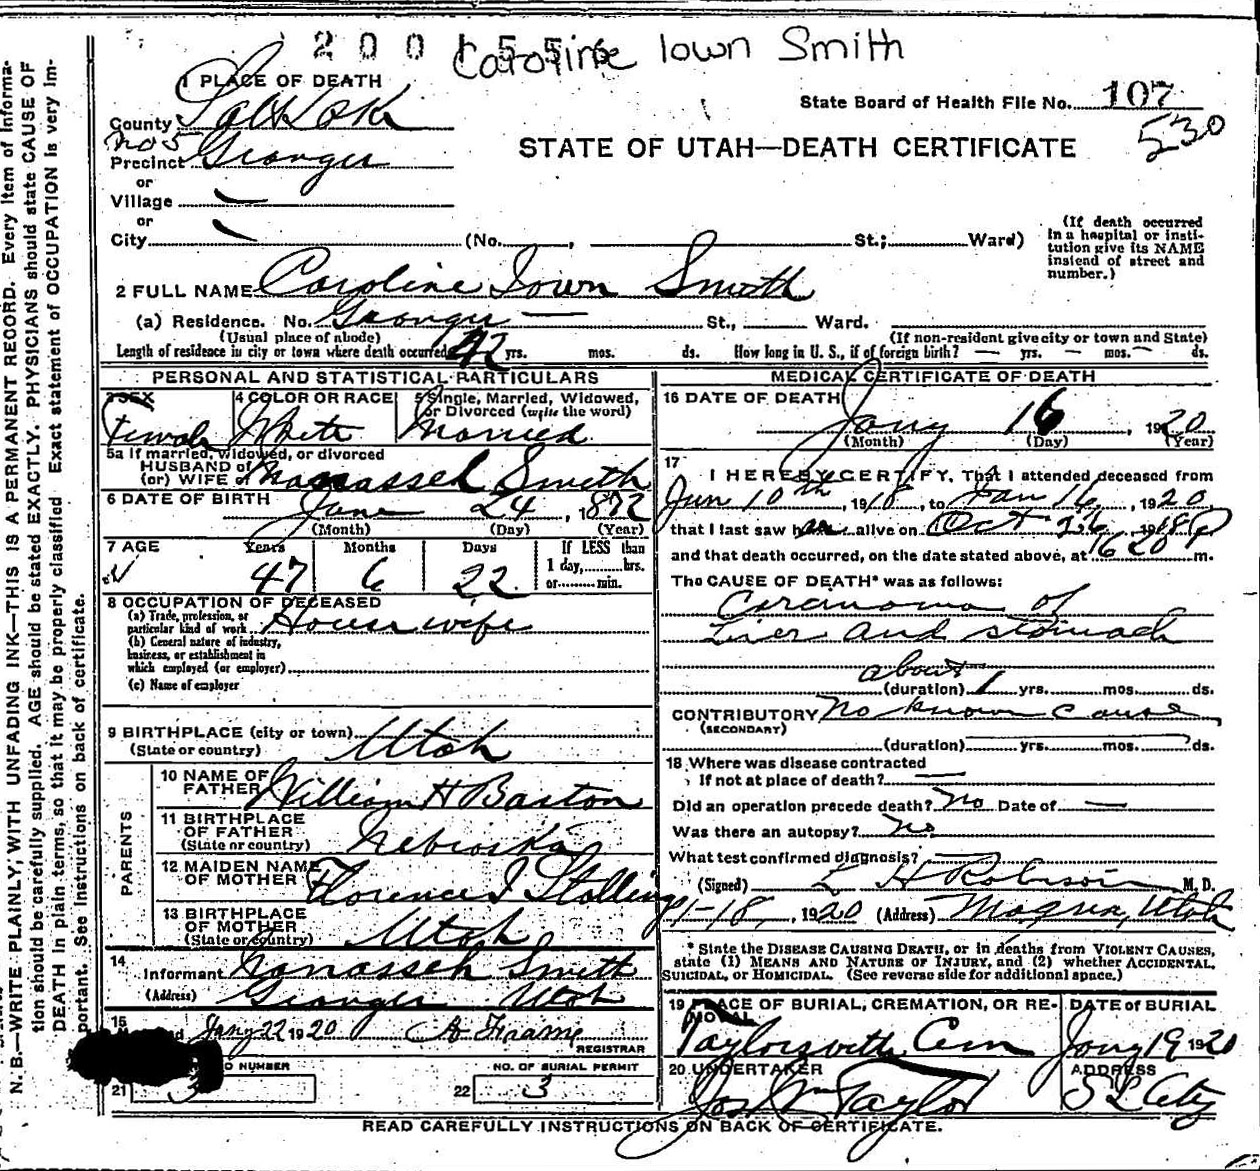 2 0 0 1 5 5
Caroline Iown Smith
1 PLACE OF DEATH
State Board of Health File No. 107
530
County Salt Lake
No 5
Precinct Granger
STATE OF UTAH—DEATH CERTIFICATE
or
Village
or
City (No. , St.; Ward)
(If death occurred in a hospital or institution give its NAME instead of street and number.)
2 FULL NAME Caroline Iown Smith
(a) Residence. No. Granger St., Ward.
(Usual place of abode) (If non-resident give city or town and State)
Length of residence in city or town where death occurred 42 yrs. mos. ds. How long in U. S., if of foreign birth? — yrs. — mos. — ds.
PERSONAL AND STATISTICAL PARTICULARS
3 SEX 4 COLOR OR RACE 5 Single, Married, Widowed, or Divorced (write the word)
Female White Married
5a If married, widowed, or divorced
HUSBAND of
(or) WIFE of Manasseh Smith
6 DATE OF BIRTH June 24, 1872
(Month) (Day) (Year)
7 AGE Years Months Days If LESS than
1 day, hrs.
or min.
47 6 22
8 OCCUPATION OF DECEASED
(a) Trade, profession, or particular kind of work Housewife
(b) General nature of industry, business, or establishment in which employed (or employer)
(c) Name of employer
9 BIRTHPLACE (city or town) Utah
(State or country)
PARENTS
10 NAME OF FATHER William H Barton
11 BIRTHPLACE OF FATHER
(State or country) Nebraska
12 MAIDEN NAME OF MOTHER Florence I Stallings
13 BIRTHPLACE OF MOTHER
(State or country) Utah
14
Informant Manasseh Smith
(Address) Granger Utah
15
Jany 22 1920
REGISTRAR
NO. OF BURIAL PERMIT
21 3 22 3
MEDICAL CERTIFICATE OF DEATH
16 DATE OF DEATH
Jany 16, 1920
(Month) (Day) (Year)
17
I HEREBY CERTIFY, That I attended deceased from
Jun 10th, 1918, to Jan 16, 1920
that I last saw her alive on Oct 26 1918
and that death occurred, on the date stated above, at P m.
The CAUSE OF DEATH* was as follows:
Carcinoma of
Liver and stomach
about
(duration) 1 yrs. mos. ds.
CONTRIBUTORY No known cause
(SECONDARY)
(duration) yrs. mos. ds.
18 Where was disease contracted
If not at place of death? —
Did an operation precede death? No Date of —
Was there an autopsy? No
What test confirmed diagnosis?
(Signed) L H Robinson M. D.
1-18, 1920 (Address) Magna, Utah
* State the DISEASE CAUSING DEATH, or in deaths from VIOLENT CAUSES,
state (1) MEANS AND NATURE OF INJURY, and (2) whether ACCIDENTAL,
SUICIDAL, or HOMICIDAL. (See reverse side for additional space.)
19 PLACE OF BURIAL, CREMATION, OR REMOVAL DATE of BURIAL
Cem Jany 19 1920
20 UNDERTAKER ADDRESS
Jos Wm Taylor S L City
READ CAREFULLY INSTRUCTIONS ON BACK OF CERTIFICATE.
N. B.—WRITE PLAINLY, WITH UNFADING INK—THIS IS A PERMANENT RECORD. Every item of information should be carefully supplied. AGE should be stated EXACTLY. PHYSICIANS should state CAUSE OF DEATH in plain terms, so that it may be properly classified. Exact statement of OCCUPATION is very important. See Instructions on back of certificate.